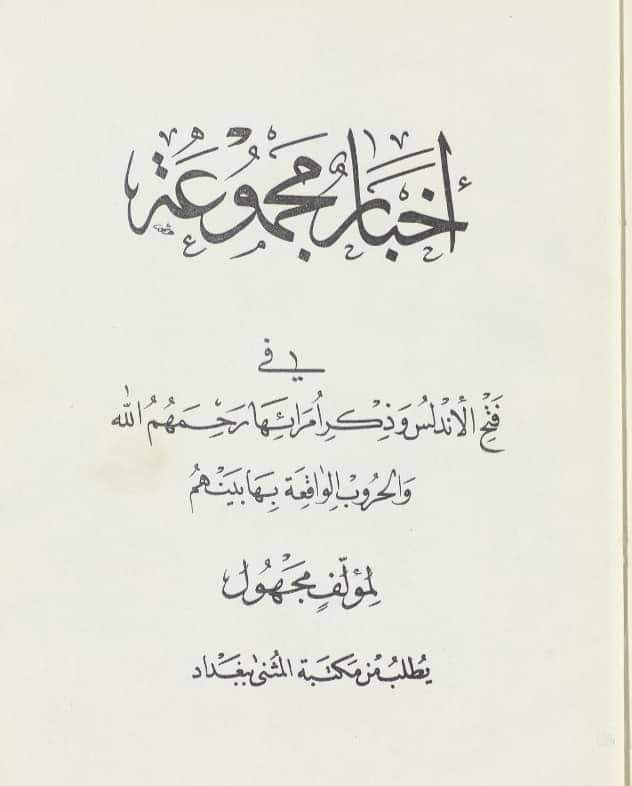 أخبار مجموعة
في
فَتْحِ الأَنْدَلُسِ وَذِكْرِ أُمَرَائِهَا رَحِمَهُمُ اللهُ
وَالحُرُوبِ الوَاقِعَةِ بِهَا بَيْنَهُمْ
لِمُؤَلِّفٍ مَجْهُول
يُطْلَبُ مِنْ مَكتَبة المُثنىٰ ببَغْدَاد